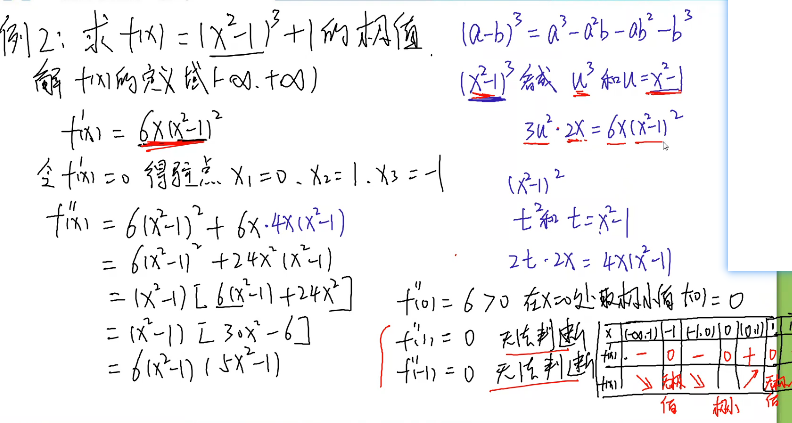 例2: 求 f(x) = (x²-1)³+1的极值.
解 f(x)的定义域(-∞.+∞)
f'(x) = 6x(x²-1)²
令 f'(x)=0 得驻点 x₁=0. x₂=1. x₃=-1
f''(x) = 6(x²-1)² + 6x·4x(x²-1)
= 6(x²-1)² +24x²(x²-1)
= (x²-1)[6(x²-1)+24x²]
= (x²-1) [30x²-6]
= 6(x²-1)(5x²-1)
(a-b)³ = a³-a²b-ab²-b³
(x²-1)³ 看成 u³ 和 u=x²-1
3u²·2x = 6x(x²-1)²
(x²-1)²
t²和 t=x²-1
2t·2x = 4x(x²-1)
f''(0) = 6 >0 在x=0处取极小值 f(0)=0
f''(1) = 0 无法判断
f''(-1) = 0 无法判断
x (-∞,-1) -1 (-1,0) 0 (0,1) 1
f'(x) - 0 - 0 + 0
f(x) ↘ 无极值 ↘ 极小 ↗ 无极值